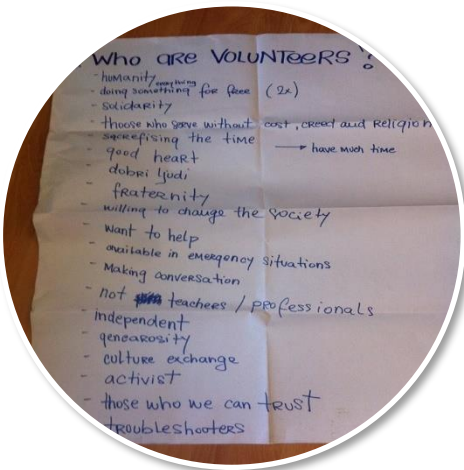 Who are VOLUNTEERS?
- humanity everything
- doing something for free (2x)
- solidarity
- thoose who serve without cost, creed and Religion
- sacrefising the time → have much time
- good heart
- dobri ljudi
- fraternity
- willing to change the society
- want to help
- available in emergency situations
- Making conversation
- not teachers / professionals
- independent
- genearosity
- culture exchange
- activist
- those who we can trust
- troubleshooters